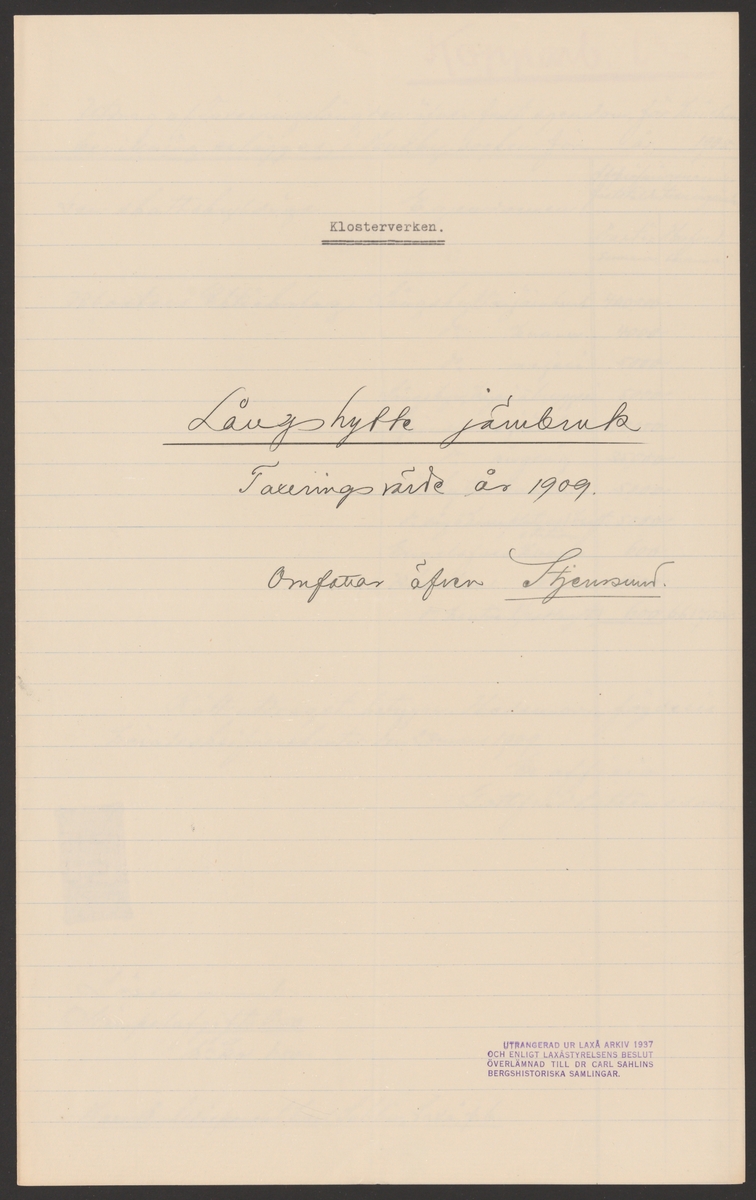 Klosterverken.
Långshytte järnbruk
Taxeringsvärde år 1909.
Omfattar äfven Stjernsund.
UTRANGERAD UR LAXÅ ARKIV 1937
OCH ENLIGT LAXÅSTYRELSENS BESLUT
ÖVERLÄMNAD TILL DR CARL SAHLINS
BERGSHISTORISKA SAMLINGAR.